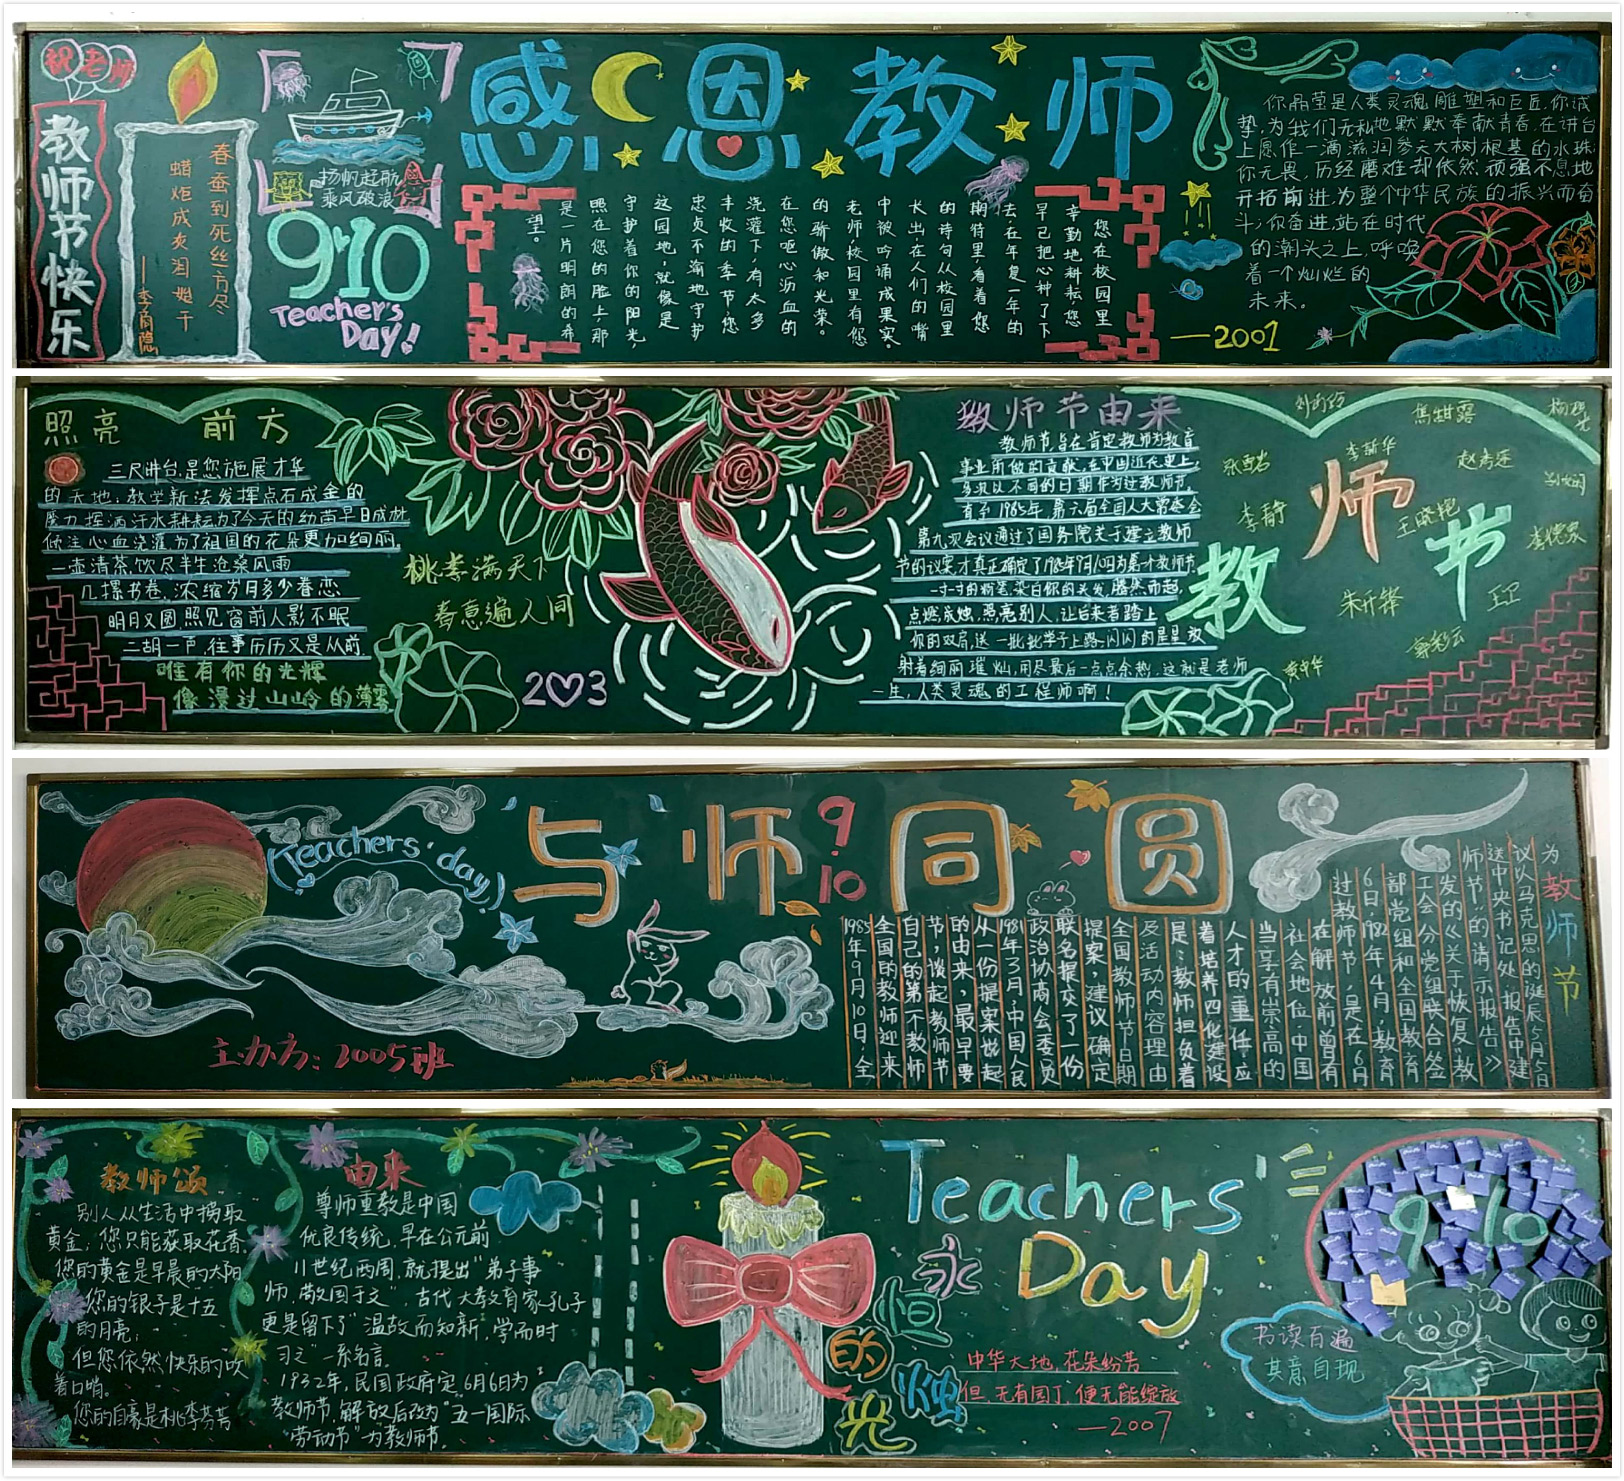 祝老师
教师节快乐
春蚕到死丝方尽
蜡炬成灰泪始干
——李商隐
扬帆起航
乘风破浪
9·10
Teacher's
Day!
感恩教师
您在校园里
辛勤地耕耘您
早已把心种了下
去在年复一年的
期待里,看着您
的诗句从校园里
长出,在人们的嘴
中被吟诵成果实。
老师,校园里有您
的骄傲和光荣。
在您呕心沥血的
浇灌下,有太多
丰收的季节,您
忠贞不渝地守护
这园地,就像是
守护着你的阳光,
照在您的脸上,那
是一片明朗的希
望。
你晶莹是人类灵魂雕塑和巨匠,你诚
挚,为我们无私地默默奉献青春,在讲台
上愿作一滴滋润参天大树根基的水珠
你无畏,历经磨难却依然顽强不息地
开拓前进,为整个中华民族的振兴而奋
斗;你奋进,站在时代
的潮头之上,呼唤
着一个灿烂的
未来。
——2001
照亮 前方
三尺讲台,是您施展才华
的天地;教学新法发挥点石成金的
魔力挥洒汗水耕耘为了今天的幼苗早日成材
倾注心血浇灌为了祖国的花朵更加绚丽.
一壶清茶,饮尽半生沧桑风雨
几摞书卷,浓缩岁月多少眷恋
明月又圆,照见窗前人影不眠
二胡一声,往事历历又是从前.
唯有你的光辉
像漫过山岭的薄雾
桃李满天下
春意遍人间
2003
教师节由来
教师节旨在肯定教师为教育
事业所做的贡献,在中国近代史上,
多次以不同的日期作为过教师节.
直至1985年,第六届全国人大常委会
第九次会议通过了国务院关于建立教师
节的议案,才真正确定了1985年9月10日为第一个教师节.
一寸寸的粉笔,染白你的头发,腾然而起,
点燃成烛,照亮别人,让后来者踏上
你的双肩,送一批批学子上路,闪闪的星星放
射着绚丽璀灿,用尽最后一点点余热,这就是老师
一生,人类灵魂的工程师啊!
教师节
李静
王晓艳
朱开锋
王卫
黄中华
与师同圆
9.10
(Teachers' day)
主办方:2005班
为教师节
议以马克思的诞辰5月5日
送中央书记处,报告中建
师节的请示报告》
发的《关于恢复教
工会分党组联合签
部党组和全国教育
6日;1982年4月,教育
过教师节,是在6月
在解放前曾有
社会地位.中国
当享有崇高的
人才的重任,应
着培养四化建设
是:教师担负着
及活动内容理由
全国教师节日期
提案,建议确定
联名提交了一份
政治协商会委员
1981年3月,中国人民
从一份提案说起
的由来,最早要
节,谈起教师节
自己的第一个教师
全国的教师迎来
1985年9月10日,全
教师颂
别人从生活中摘取
黄金;您只能获取花香.
您的黄金是早晨的太阳
您的银子是十五
的月亮;
但您依然快乐的吹
着口哨。
您的自豪是桃李芬芳
由来
尊师重教是中国
优良传统,早在公元前
11世纪西周,就提出"弟子事
师,敬同于父",古代大教育家孔子
更是留下了"温故而知新,学而时
习之"一系名言.
1932年,民国政府定6月6日为
教师节,解放后改为"五一国际
劳动节"为教师节.
Teachers'
Day
永恒的烛光
中华大地,花朵纷芳
但无有园丁,便无能绽放
——2007
9·10
书读百遍
其意自现